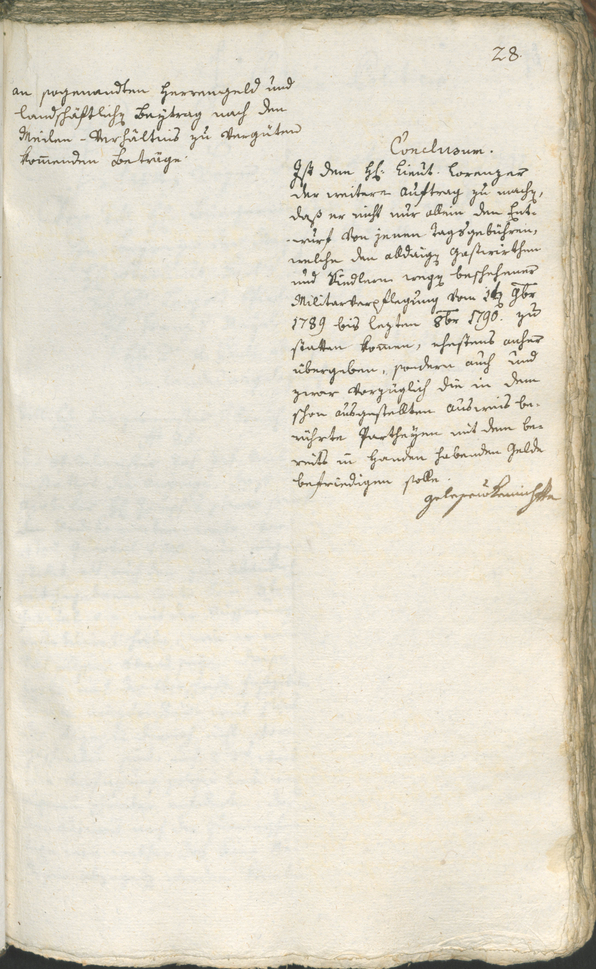 28.
an sogenandten Herrengeld und
landschäftlichen Beÿtrag nach den
Meilen-Verhältnis zu verguten
kom̅enden Beträge.
Conclusum.
Ist dem H: Lieut. Lorenzer
der weitere Auftrag zu machen,
daß er nicht nur allein den Ent-
wurf von jenen Tagsgebühren,
welche den alldaigen Gastwirthen
und wegen beschehener
Militarverpflegung vom 9br
1789 bis lezten 8br 1790. zu
statten kom̅en, ehestens anhero
übergeben, sondern auch und
zwar vorzüglich die in dem
schon ausgestellten Ausweis be-
rührte Partheÿen mit dem be-
reits in Handen habenden Gelde
befriedigen solle.